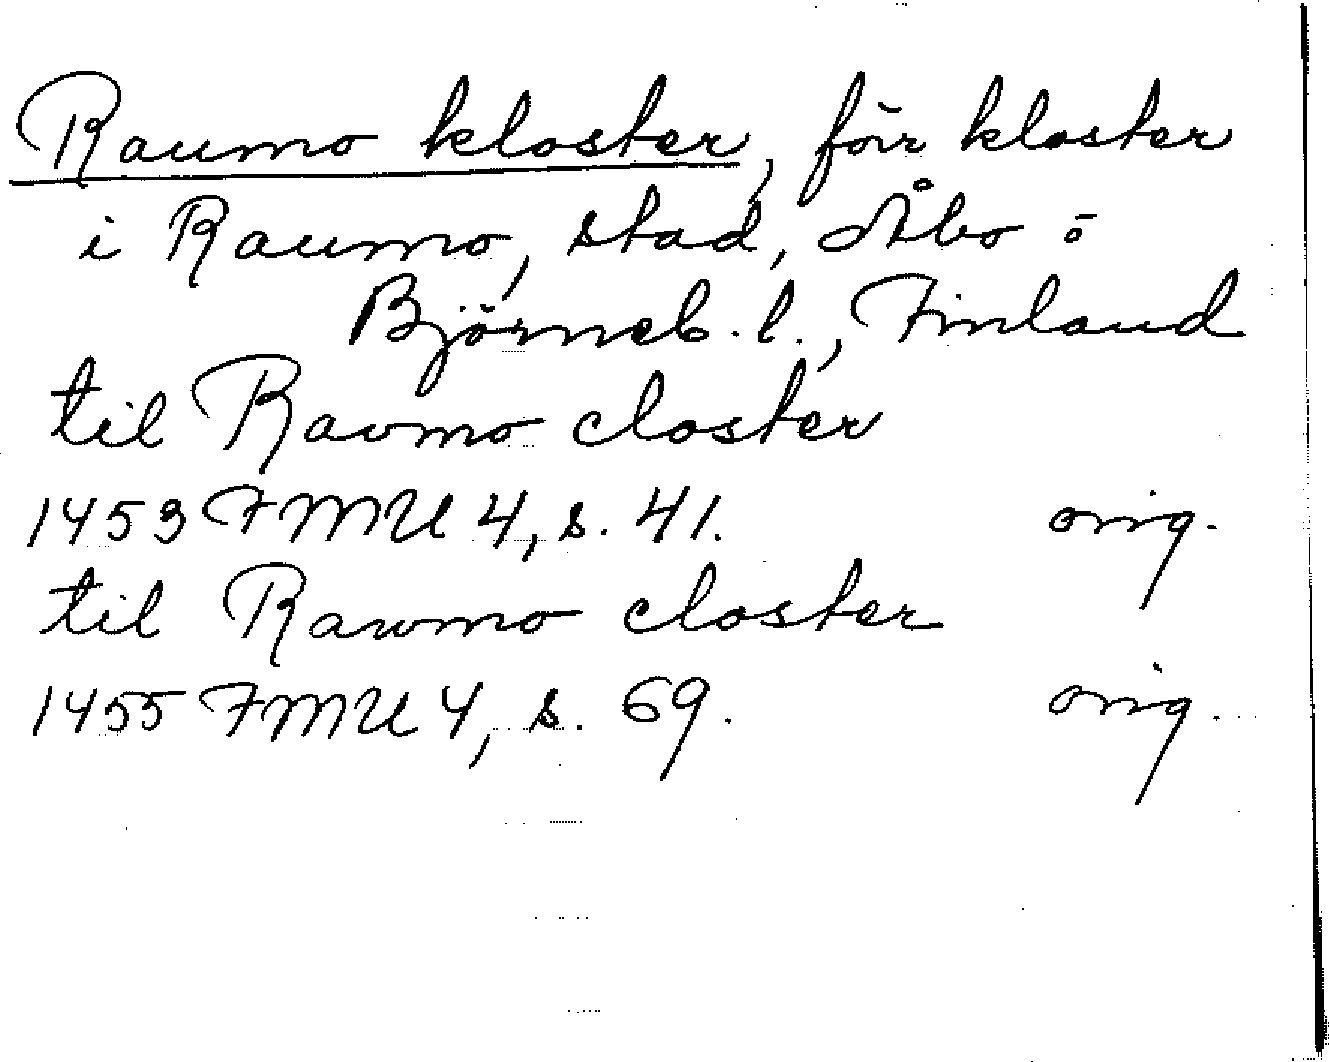 Raumo kloster, förr kloster
i Raumo, stad, Åbo o
Björneb. l., Finland
til Ravmo closter
1453 FMU 4, s. 41. orig.
til Rawmo closter
1455 FMU 4, s. 69. orig.